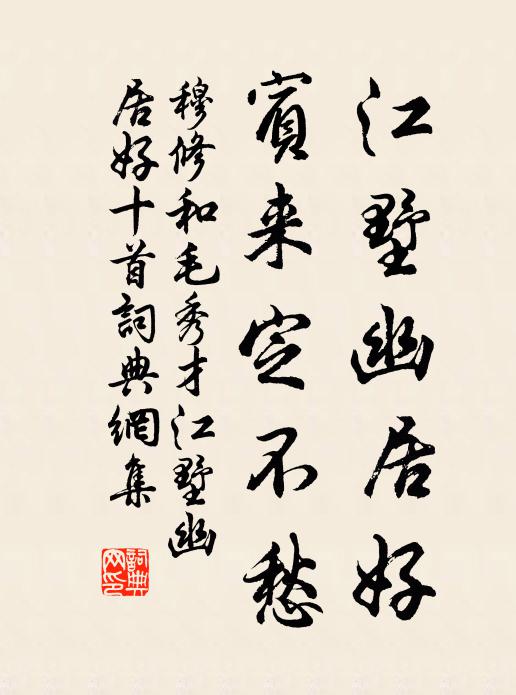 江墅幽居好
賓来定不愁
穆修和毛秀才江墅幽
居好十首詞典網集
詞典網印